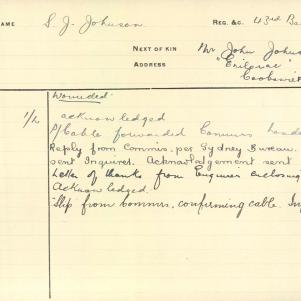 NAME S. J. Johnson REG. &C. 43rd Ba
NEXT OF KIN Mr John Johns
ADDRESS "
Wounded.
1/2 acknowledged
Cable forwarded Commrs Lond
Reply from Commrs, per Sydney Bureau.
sent Inquirer. Acknowledgement sent
Letter of thanks from Enquirer enclosing
Acknowledged.
Slip from Commrs, confirming cable. In